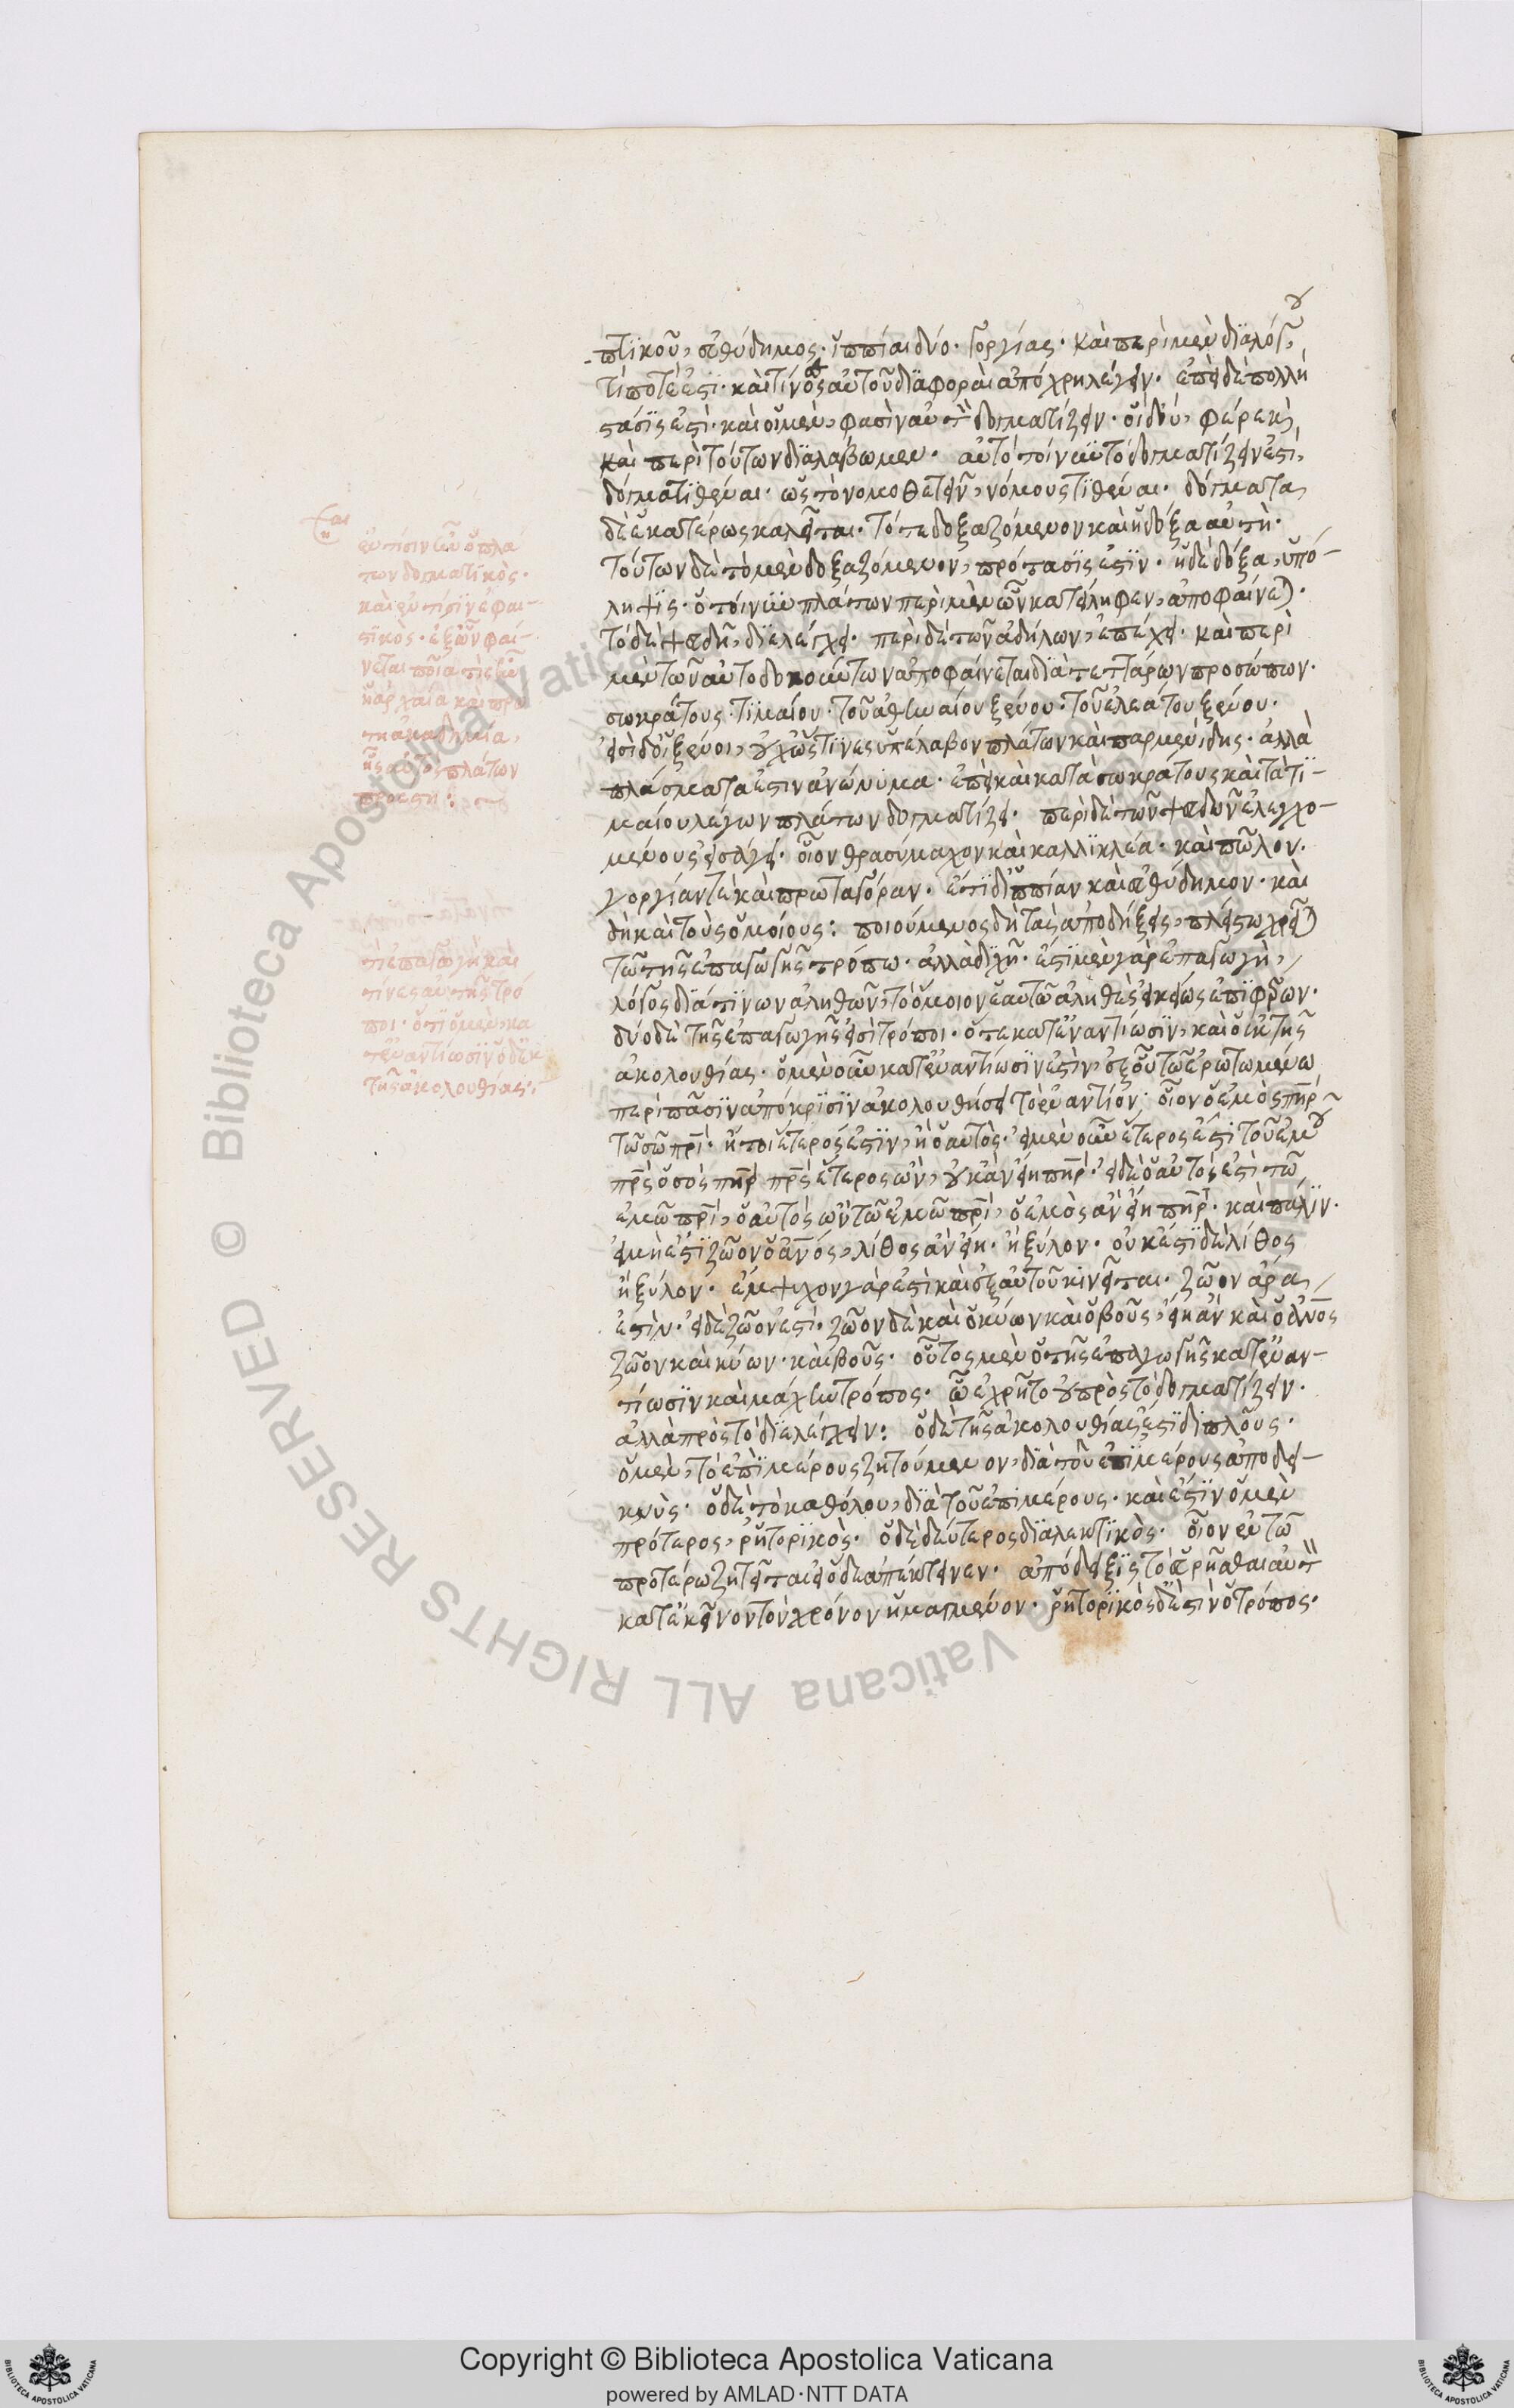 πτικοῦ, εὐθύδημος· ἱππίαι δύο· γοργίας· καὶ περὶ μὲν διαλόγου,
τί ποτέ ἐστι· καὶ τίνες αὐτοῦ διαφοραὶ ἀπόχρη λέγειν· ἐπεὶ δὲ πολλὴ
στάσις ἐστὶ· καὶ οἱ μὲν, φασὶν αὐτὸν δογματίζειν· οἱ δ' οὔ, φέρε καὶ
καὶ περὶ τούτων διαλάβωμεν· αὐτὸ τοίνυν τὸ δογματίζειν ἐστὶ,
δόγμα τιθέναι· ὡς τὸ νομοθετεῖν, νόμους τιθέναι· δόγματα
δὲ ἑκατέρως καλεῖται· τό τε δοξαζόμενον καὶ ἡ δόξα αὐτὴ·
τούτων δὲ τὸ μὲν δοξαζόμενον, πρότασις ἐστὶν· ἡ δὲ δόξα, ὑπό-
ληψις· ὁ τοίνυν πλάτων περὶ μὲν ὧν κατείληφεν, ἀποφαίνεται·
τὸ δὲ ψευδῆ, διελέγχει· περὶ δὲ τῶν ἀδήλων, ἐπέχει· καὶ περὶ
μὲν τῶν αὐτῷ δοκούντων ἀποφαίνεται διὰ τεττάρων προσώπων·
σωκράτους· τιμαίου· τοῦ ἀθηναίου ξένου· τοῦ ἐλεάτου ξένου·
εἰσὶ δ' οἱ ξένοι, οὐχ ὥς τινες ὑπέλαβον πλάτων καὶ παρμενίδης· ἀλλὰ
πλάσματα ἐστιν ἀνώνυμα· ἐπεὶ καὶ κατὰ σωκράτους καὶ τὰ τι-
μαίου λέγων πλάτων δογματίζει· περὶ δὲ τῶν ψευδῶν ἐλεγχο-
μένους εἰσάγει· οἷον θρασύμαχον καὶ καλλικλέα· καὶ πῶλον·
γοργίαν τὲ καὶ πρωταγόραν· ἔτι δ' ἱππίαν καὶ εὐθύδημον· καὶ
δὴ καὶ τοὺς ὁμοίους: ποιούμενος δὴ τὰς ἀποδείξεις, πλείστω χρῆται
τῶ τῆς ἐπαγωγῆς τρόπω· ἀλλὰ διχῆ· ἐστὶ μὲν γὰρ ἐπαγωγὴ,
λόγος διά τινων ἀληθῶν, τὸ ὅμοιον ἑαυτῶ ἀληθὲς εἰκείως ἐπιφέρων·
δύο δὲ τῆς ἐπαγωγῆς εἰσὶ τρόποι· ὅ τε κατ' ἐναντίωσιν, καὶ ὁ ἐκ τῆς
ἀκολουθίας· ὁ μὲν οὖν κατ' ἐναντίωσιν ἐστὶν, ἐξ οὗ τῶ ἐρωτωμένω
περὶ πᾶσιν ἀπόκρισιν ἀκολουθήσει τὸ ἐναντίον· οἷον ὁ ἐμὸς πηρ
τῶ σῶ πρί· ἤτοι ἕτερος ἐστὶν, ἢ ὁ αὐτὸς· εἰ μὲν οὖν ἕτερος ἐστὶ τοῦ ἐμοῦ
πρς ὁ σὸς πηρ πρς ἕτερος ὢν, οὐκ ἂν εἴη πηρ· εἰ δὲ ὁ αὐτὸς ἐστὶ τῶ
ἐμῶ πρὶ, ὁ αὐτὸς ὢν τῶ ἐμῶ πρὶ, ὁ ἐμὸς ἂν εἴη πηρ· καὶ πάλιν·
εἰ μὴ ἐστὶ ζῶον ὁ ἀνος, λίθος ἂν εἴη· ἢ ξύλον· οὐκ ἐστὶ δὲ λίθος
ἢ ξύλον· ἔμψυχον γὰρ ἐστὶ καὶ ἐξ αὐτοῦ κινεῖται· ζῶον ἄρα
ἐστὶν· εἰ δὲ ζῶον ἐστὶ· ζῶον δὲ καὶ ὁ κύων καὶ ὁ βοῦς, εἴη ἂν καὶ ὁ ἀνος
ζῶον καὶ κύων· καὶ βοῦς· οὗτος μὲν ὁ τῆς ἐπαγωγῆς κατ' ἐναν-
τίωσιν καὶ μάχην τρόπος· ὧ ἐχρῆτο οὐ πρὸς τὸ δογματίζειν·
ἀλλὰ πρὸς τὸ διελέγχειν: ὁ δὲ τῆς ἀκολουθίας ἐστὶ διπλοῦς·
ὁ μὲν, τὸ ἐπὶ μέρους ζητούμενον, διὰ τοῦ ἐπὶ μέρους ἀποδει-
κνὺς· ὁ δὲ τὸ καθόλου, διὰ τοῦ ἐπὶ μέρους· καὶ ἐστὶν ὁ μὲν
πρότερος, ῥητορικὸς· ὁ δὲ δεύτερος διαλεκτικὸς· οἷον ἐν τῶ
προτέρω ζητεῖται εἰ ὅδε ἀπέκτεινεν· ἀπόδειξις τὸ εὑρῆσθαι αὐτὸν
κατ' ἐκεῖνον τὸν χρόνον ἡμαγμένον· ῥητορικὸς δὲ ἐστὶν ὁ τρόπος·
ἐν τίσιν οὖν ὁ πλά
των δογματικὸς·
καὶ ἐν τίσιν ἐφαι-
τικὸς· ἐξ ὧν φαί-
νεται ποία τὶς ἦν
ἡ ἀρχαία καὶ πρώ
τη ἀκαδημία,
ἧς αὐτὸς πλάτων
προέστη:
τί ἐπαγωγὴ καὶ
τίνες αὐτῆς τρό
ποι· ὅτι ὁ μὲν, κα
τ' ἐναντίωσιν ὁ δὲ ἐκ
τῆς ἀκολουθίας:
Copyright © Biblioteca Apostolica Vaticana
powered by AMLAD·NTT DATA